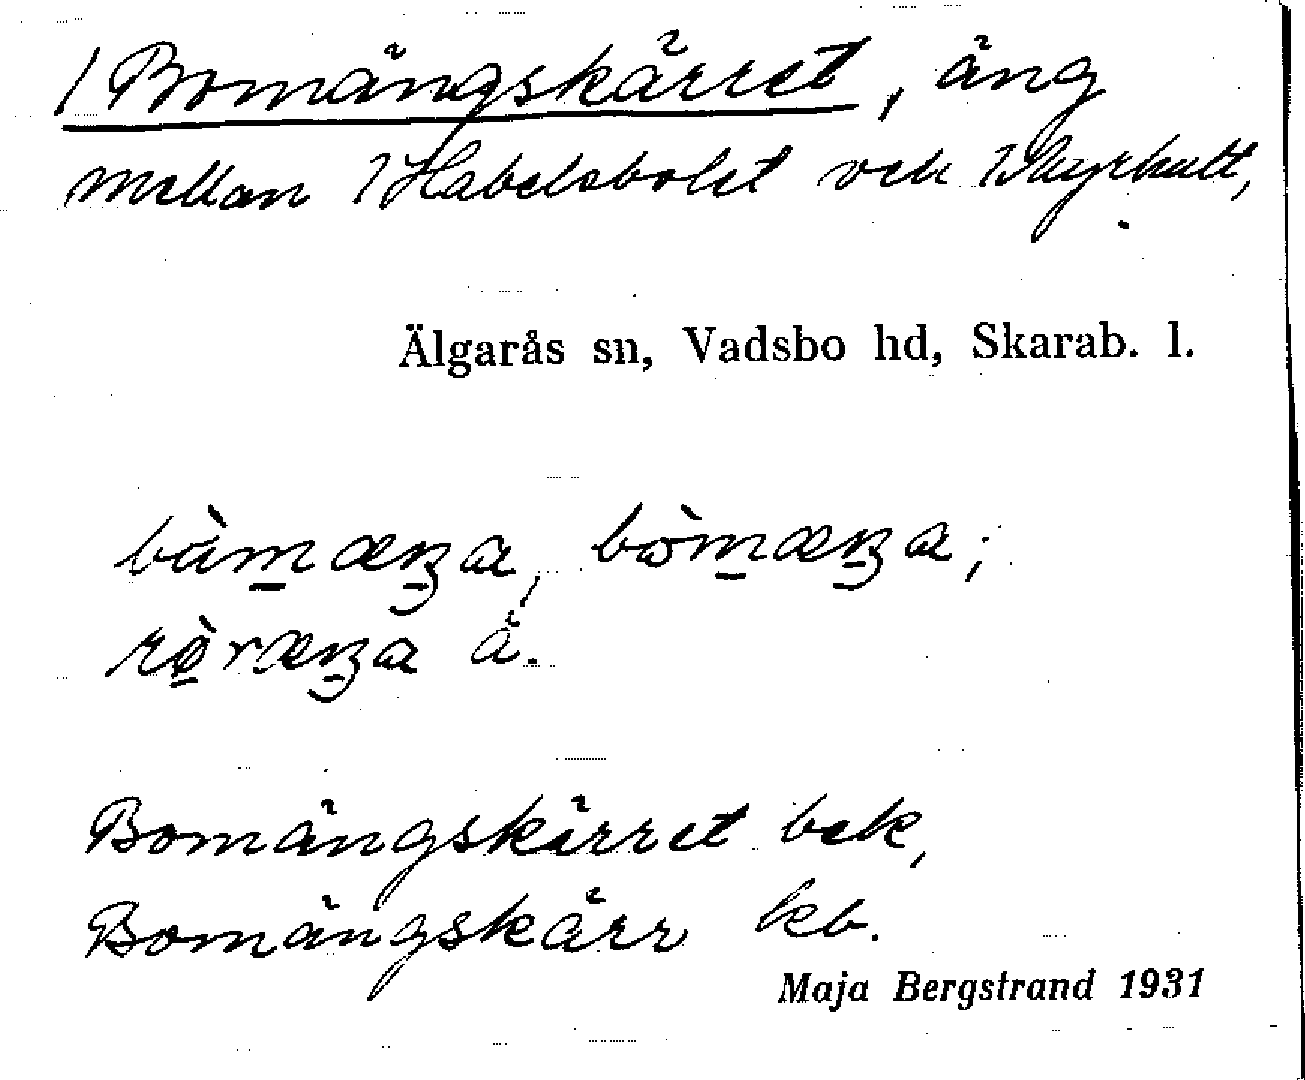 /Bomängskärret, äng
mellan /Habelsbolet och
Älgarås sn, Vadsbo hd, Skarab. l.
bùm̲æŋa, bòm̲æŋa;
rø̲̀ræŋa å.
Bomängskärret bek,
Bomängskärr kb.
Maja Bergstrand 1931